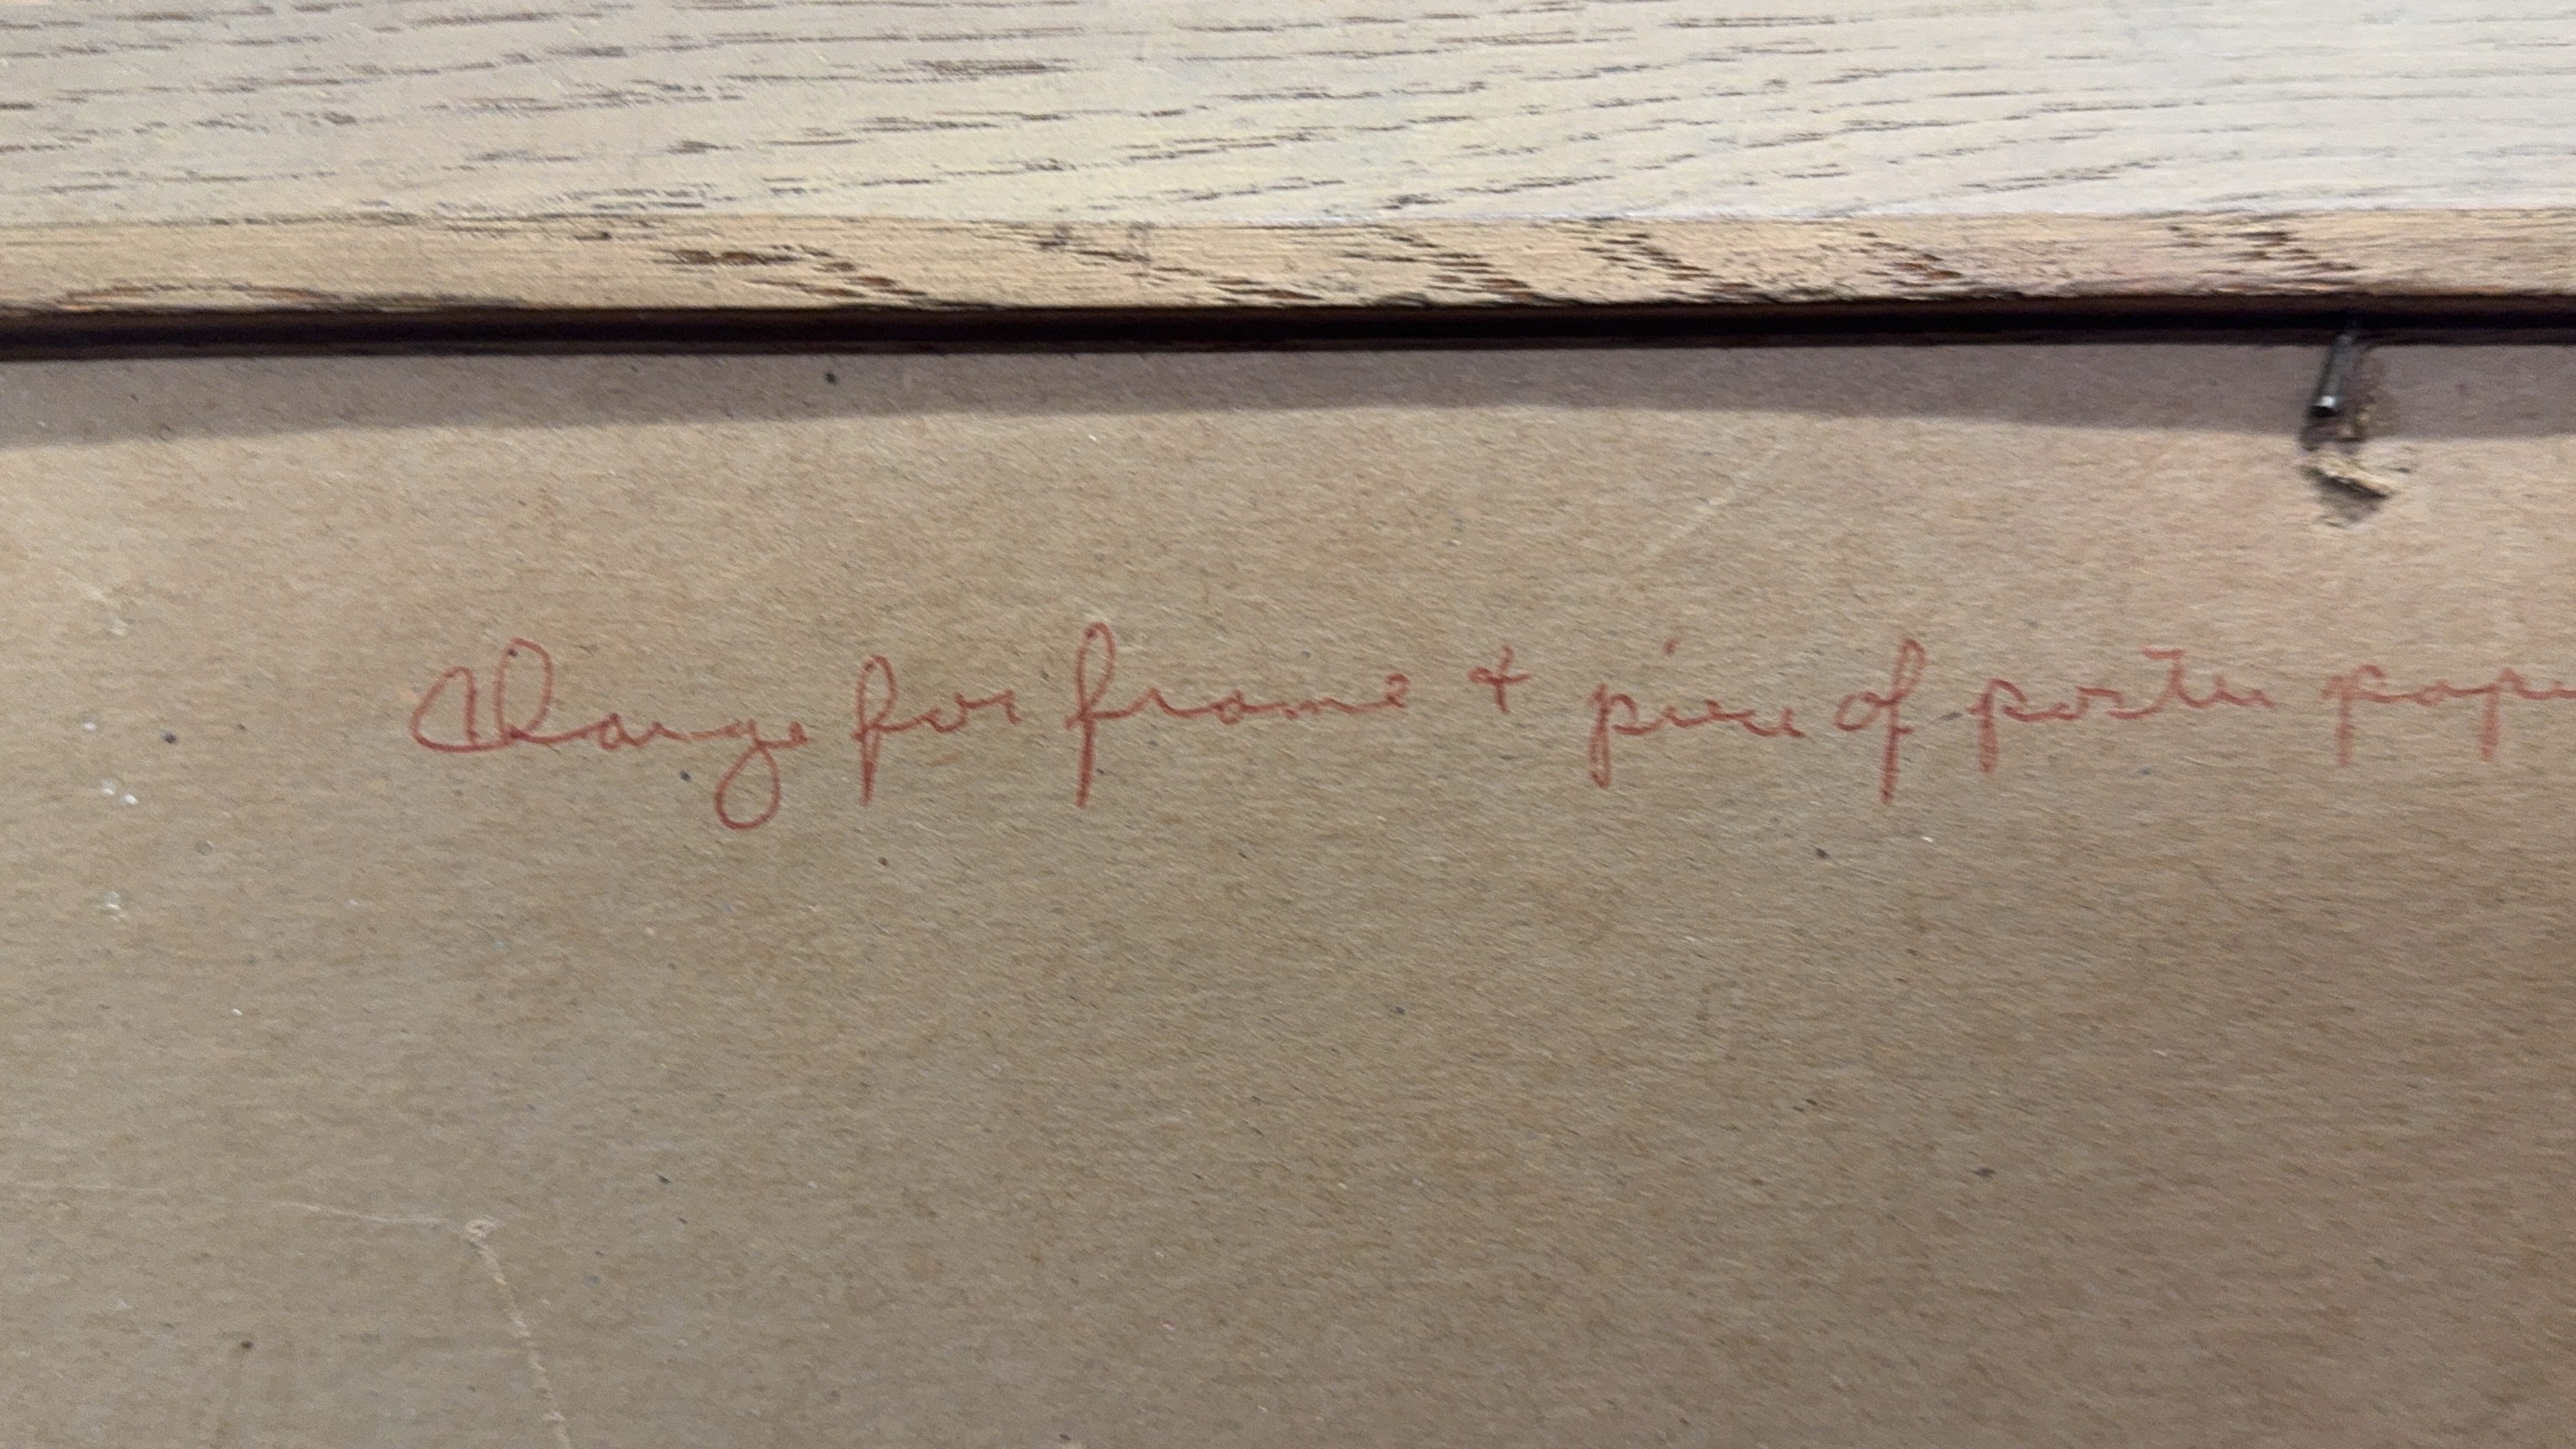 Charge for frame & piece of poster pape